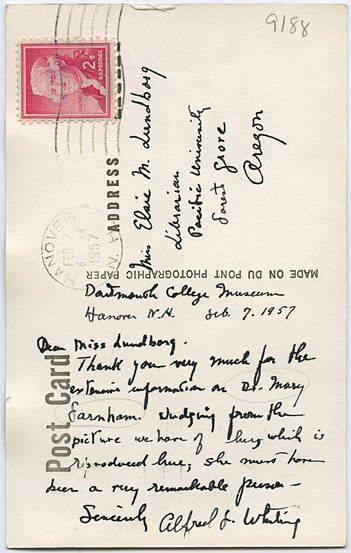 9188
2¢
U.S. POSTAGE
HANOVER
FEB
1957
N.H.
ADDRESS
Miss Elsie M. Lundborg
Librarian
Pacific University
Forest Grove
Oregon
MADE ON DU PONT PHOTOGRAPHIC PAPER
Post Card
Dartmouth College Museum
Hanover N.H. Feb. 7. 1957
Dear Miss Lundborg.
Thank you very much for the
extensive information on Dr. Mary
Farnham. Judging from the
picture we have of her, which is
reproduced here, she must have
been a very remarkable person —
Sincerely Alfred F. Whiting